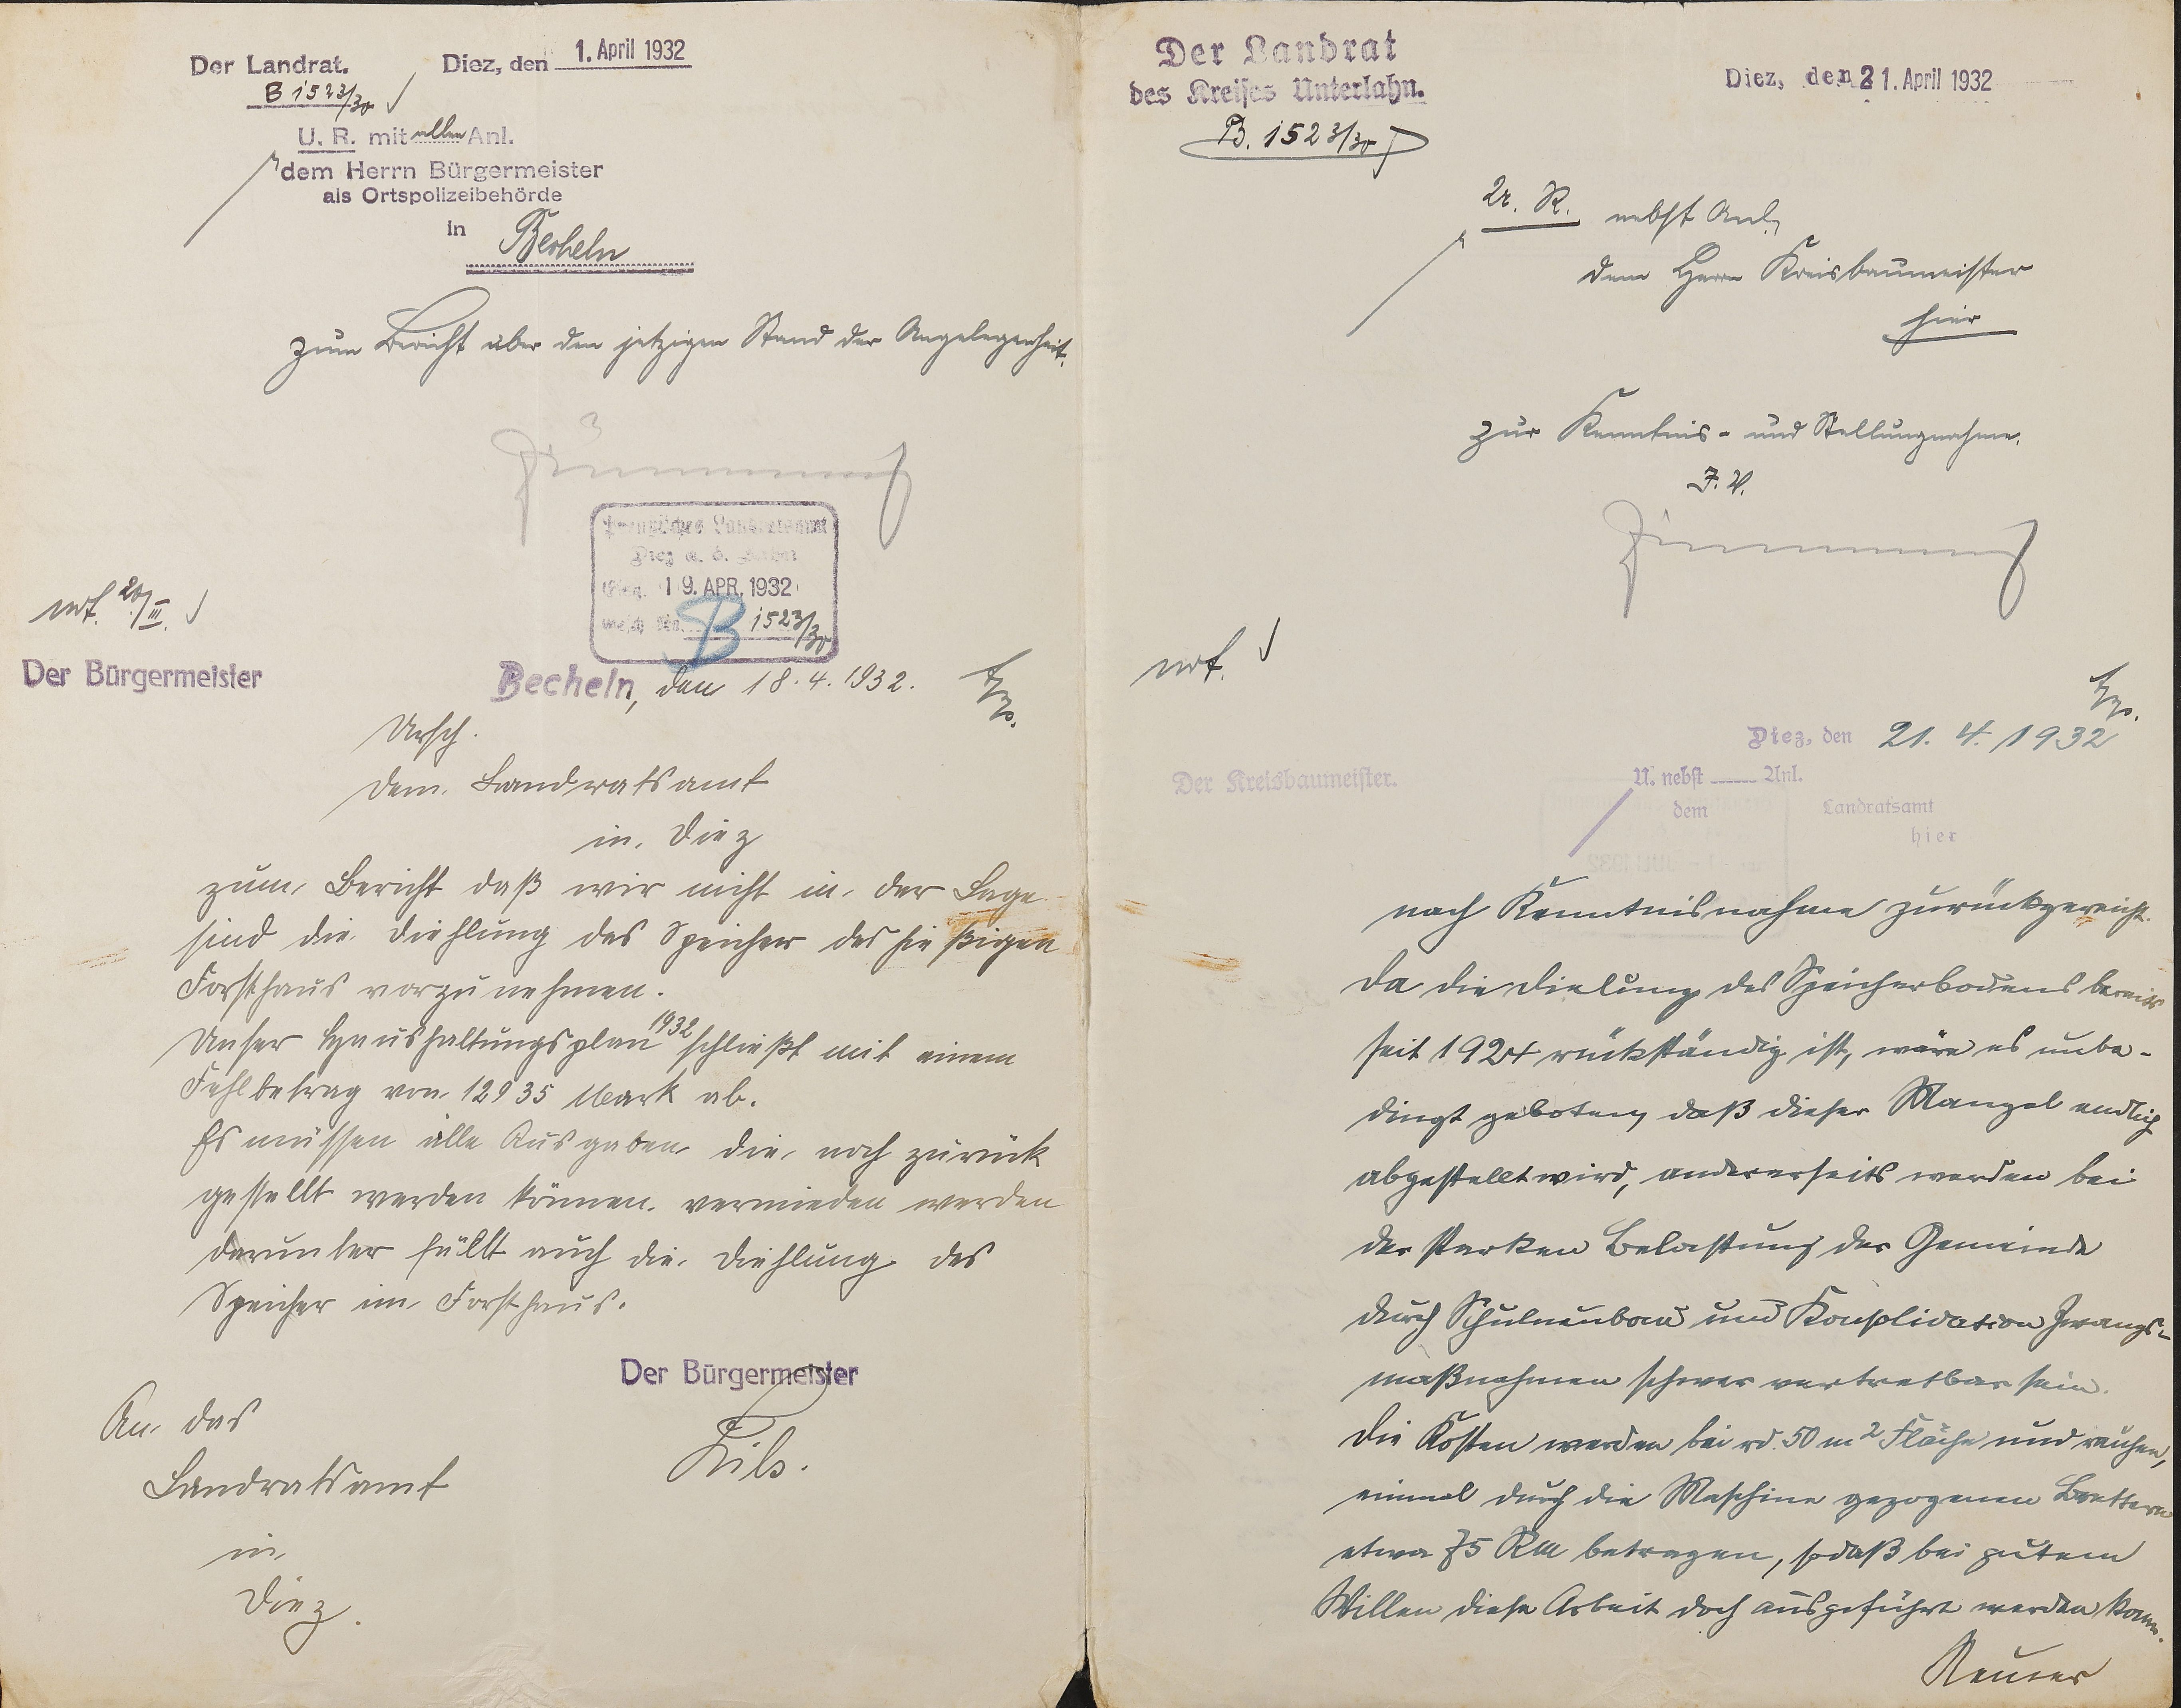 Der Landrat. Diez, den 1. April 1932
B 1523/30
U. R. mit allen Anl.
dem Herrn Bürgermeister
als Ortspolizeibehörde
in Becheln
zum Bericht über den jetzigen Stand der Angelegenheit.
Preußisches Landratsamt
Diez a. d. Lahn
Eing. 19. APR. 1932
B 1523/30
Der Bürgermeister
Becheln, den 18.4.1932.
Ursch.
dem Landratsamt
in Diez
zum Bericht daß wir nicht in der Lage
sind die Diehlung des Speicher des hießigen
Forsthaus vorzunehmen.
Unser Haushaltungsplan 1932 schließt mit einem
Fehlbetrag von 12935 Mark ab.
Es müssen alle Ausgaben die noch zurück
gestellt werden können. vermieden werden
darunter fällt auch die Diehlung des
Speicher im Forsthaus.
Der Bürgermeister
An das
Landratsamt
in
Diez.
Der Landrat
des Kreises Unterlahn.
Diez, den 21. April 1932
B. 1523/30
U. R. nebst Anl.
dem Herrn Kreisbaumeister
hier
zur Kenntnis- und Stellungnahme.
I. V.
Diez, den 21. 4. 1932
Der Kreisbaumeister.
U. nebst Anl.
dem Landratsamt
hier
nach Kenntnisnahme zurückgereicht.
Da die Dielung des Speicherbodens bereits
seit 1924 rückständig ist, wäre es unbe-
dingt geboten, daß dieser Mangel endlich
abgestellt wird, andererseits werden bei
der starken Belastung der Gemeinde
durch Schulneubau und Konsolidation Zwangs-
maßnahmen schwer vertretbar sein.
Die Kosten werden bei rd. 50 m² Fläche und rauhen,
einmal durch die Maschine gezogenen Brettern
etwa 75 RM betragen, sodaß bei gutem
Willen diese Arbeit doch ausgeführt werden kann.